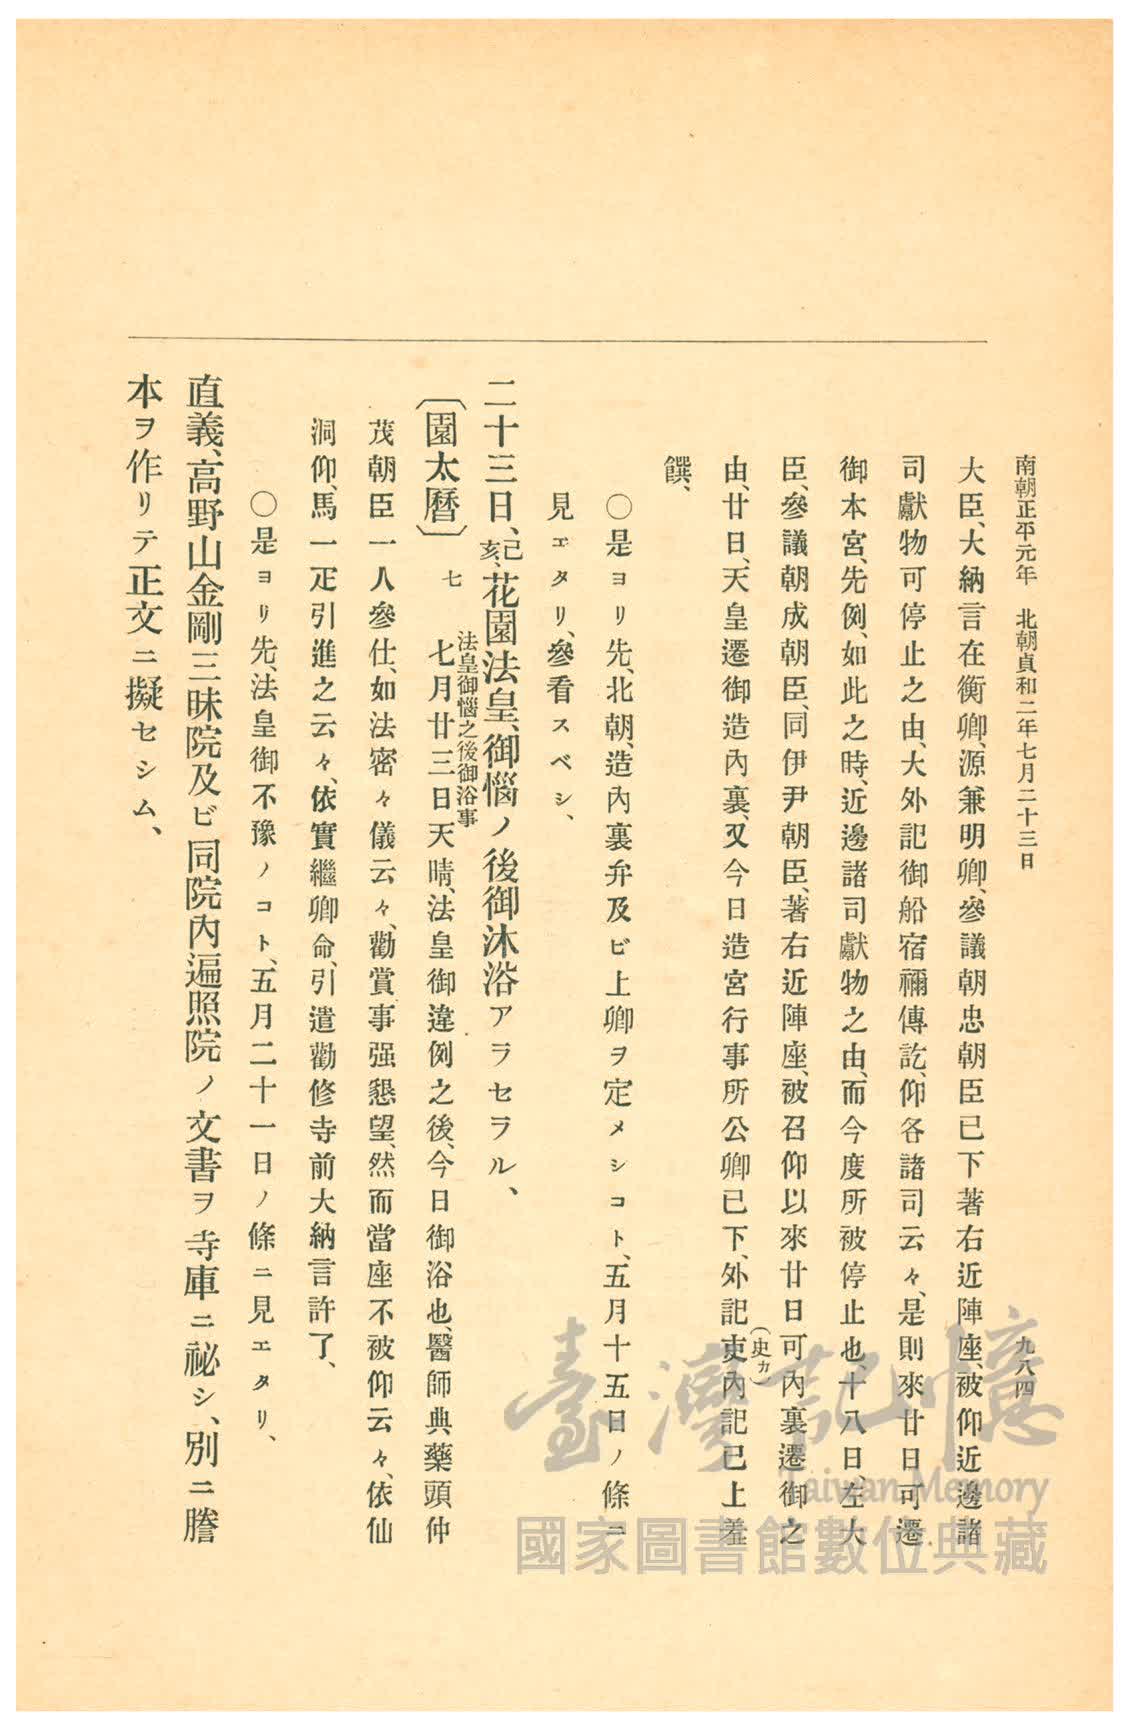 南朝正平元年　北朝貞和二年七月二十三日　九八四
大臣、大納言在衡卿、源兼明卿、參議朝忠朝臣已下著右近陣座、被仰近邊諸
司獻物可停止之由、大外記御船宿禰傳訖、仰各諸司云々、是則來廿日可遷
御本宮、先例、如此之時、近邊諸司獻物之由、而今度所被停止也、十八日、左大
臣、參議朝成朝臣、同伊尹朝臣、著右近陣座、被召仰以來廿日可內裏遷御之
由、廿日、天皇遷御造內裏、又今日造宮行事所公卿已下、外記吏(史カ)內記已上羞
饌、
○是ヨリ先、北朝、造內裏弁及ビ上卿ヲ定メシコト、五月十五日ノ條ニ
見エタリ、參看スベシ、
二十三日、己亥、花園法皇、御惱ノ後御沐浴アラセラル、
〔園太曆〕七　法皇御惱之後御浴事　七月廿三日天晴、法皇御違例之後、今日御浴也、醫師典藥頭仲
茂朝臣一人參仕、如法密々儀云々、勸賞事强懇望、然而當座不被仰云々、依仙
洞仰、馬一疋引進之云々、依實繼卿命、引遣勸修寺前大納言許了、
○是ヨリ先、法皇御不豫ノコト、五月二十一日ノ條ニ見エタリ、
直義、高野山金剛三昧院及ビ同院內遍照院ノ文書ヲ寺庫ニ祕シ、別ニ謄
本ヲ作リテ正文ニ擬セシム、
臺灣記憶
Taiwan Memory
國家圖書館數位典藏